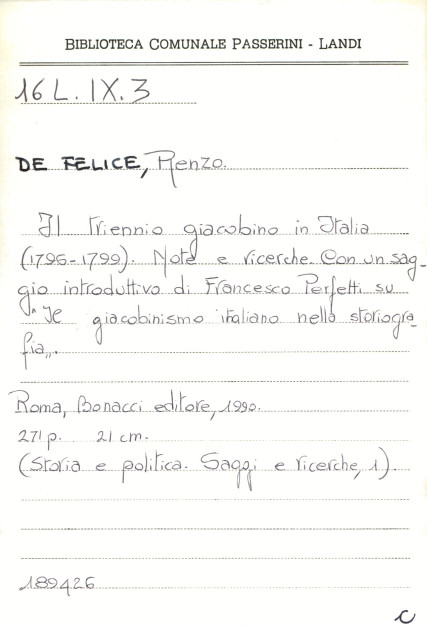 BIBLIOTECA COMUNALE PASSERINI - LANDI
16 L. IX. 3
DE FELICE, Renzo.
Il triennio giacobino in Italia
(1796-1799). Note e ricerche. Con un sag-
gio introduttivo di Francesco Perfetti su
"Il giacobinismo italiano nella storiogra-
fia".
Roma, Bonacci editore, 1990.
271 p. 21 cm.
(Storia e politica. Saggi e ricerche, 1).
189426
C